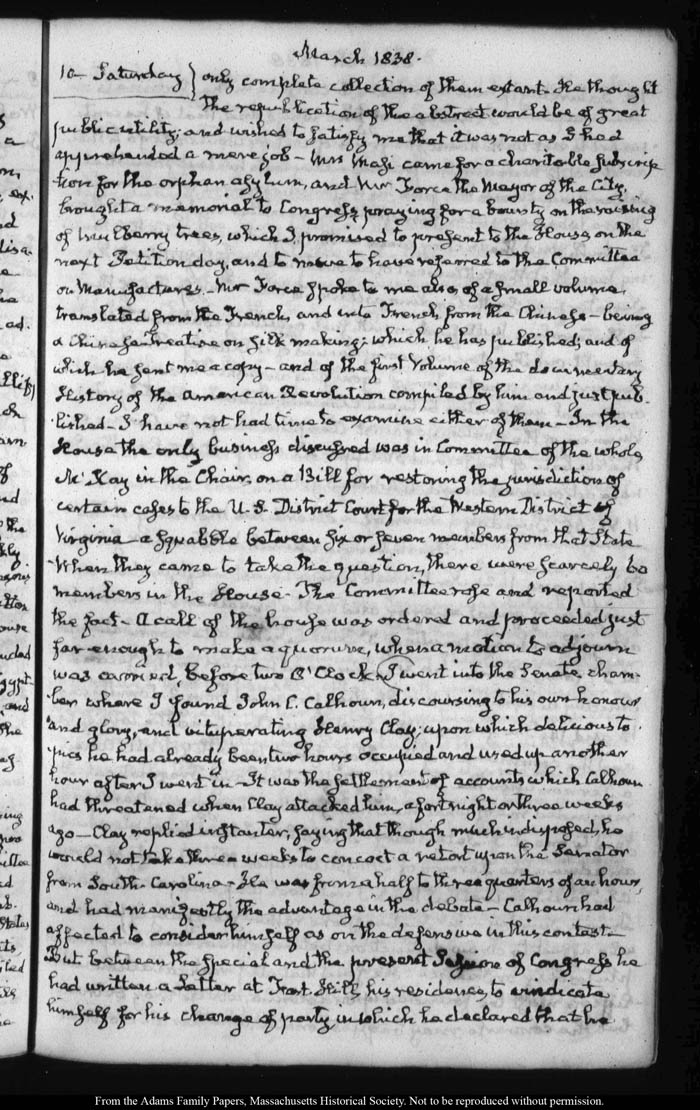 March 1838.
10 Saturday} only complete collection of them extant. He thought
the republication of the abstract would be of great
public utility; and wished to satisfy me that it was not as I had
apprehended a mere job – Mrs came for a charitable subscrip
tion for the orphan asylum, and Mr Force the Mayor of the City,
brought a memorial to Congress, praying for a bounty on the raising
of mulberry trees, which I promised to present to the House, on the
next Petition day, and to move to have referred to the Committee
on Manufactures. – Mr Force spoke to me also of a small volume,
translated from the French, and into French from the Chinese – being
a Chinese Treatise on silk making; which he has published; and of
which he sent me a copy – and of the first Volume of the documentary
History of the American Revolution compiled by him and just pub.
lished – I have not had time to examine either of them – In the
House the only business discussed was in Committee of the whole,
Mc Kay in the Chair, on a Bill for restoring the jurisdiction of
certain cases to the U. S. District Court for the Western District of
Virginia – a squabble between six or seven members from that State
When they came to take the question, there were scarcely 60
members in the House – The Committee rose and reported
the fact – A call of the house was ordered and proceeded just
far enough to make a quorum, when a motion to adjourn
was carried, before two O'Clock. I went into the Senate cham-
ber where I found John C. Calhoun, discoursing to his own honour
and glory, and vituperating Henry Clay; upon which delicious to
pics he had already been two hours occupied and used up another
hour after I went in – It was the settlement of accounts which Calhoun
had threatened when Clay attacked him, a fortnight or three weeks
ago – Clay replied instanter, saying that though much indisposed, he
would not take three weeks to concoct a retort upon the Senator
from South Carolina – He was from a half to three quarters of an hour,
and had manifestly the advantage in the debate – Calhoun had
affected to consider himself as on the defensive in this contest –
But between the special and the present Session of Congress he
had written a Letter at Fort Hill, his residence, to vindicate
himself for his change of party, in which he declared that he
From the Adams Family Papers, Massachusetts Historical Society. Not to be reproduced without permission.